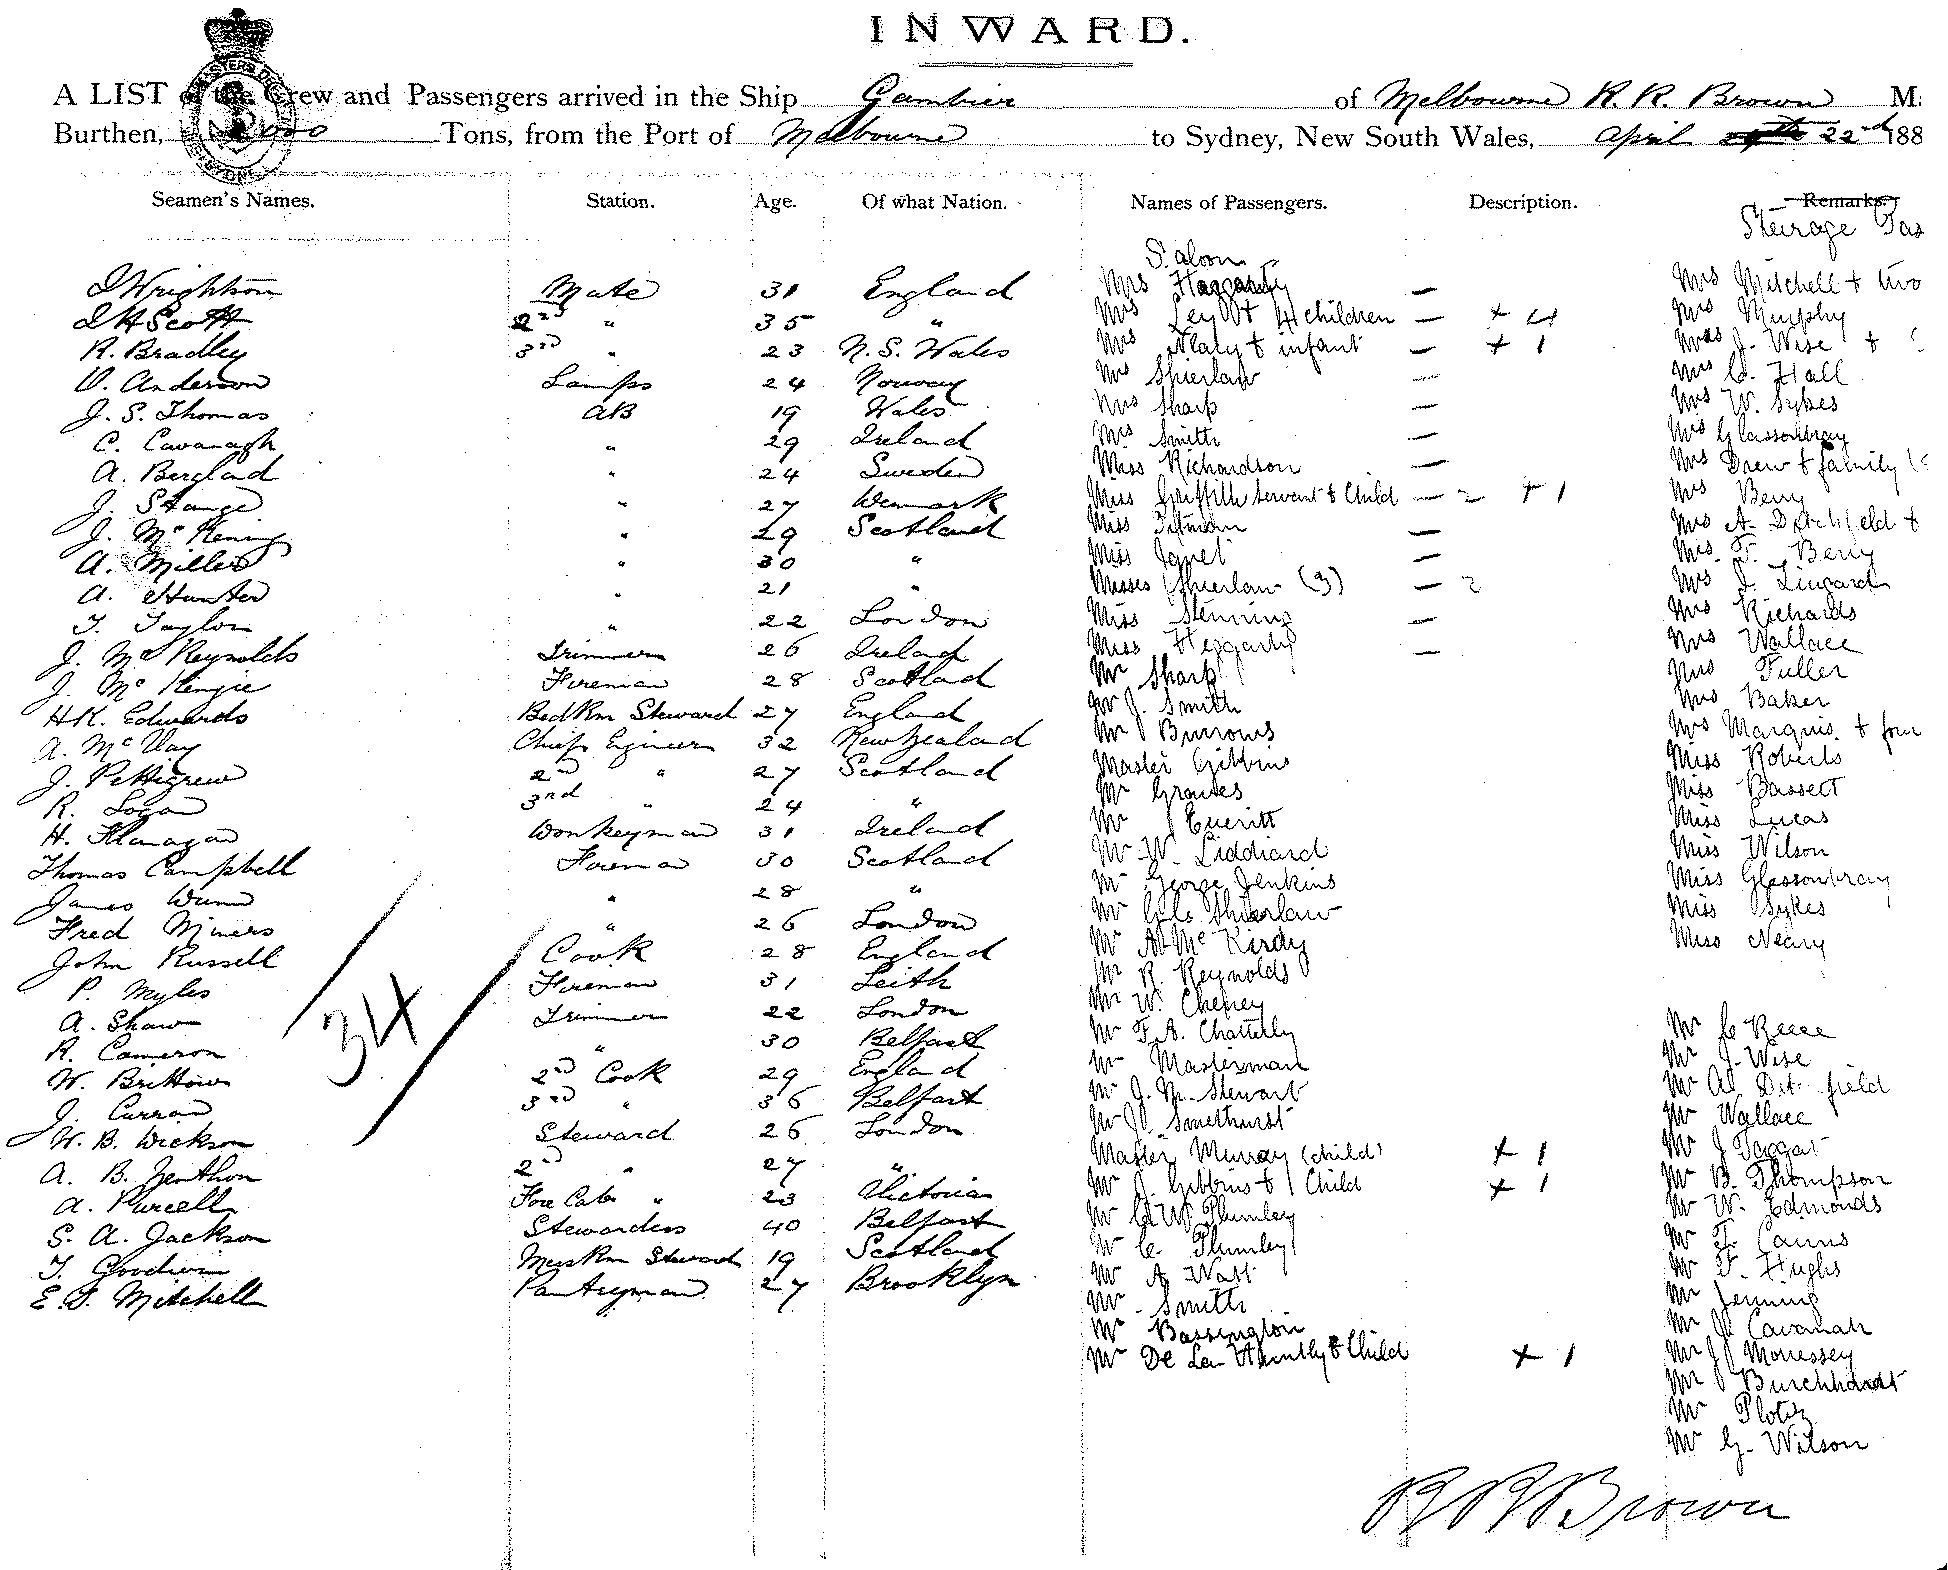 INWARD.
A LIST of the Crew and Passengers arrived in the Ship Gambier of Melbourne R. R. Brown M.
Burthen, Tons, from the Port of Melbourne to Sydney, New South Wales, April 22nd 188
Seamen's Names. Station. Age. Of what Nation. Names of Passengers. Description. Remarks.
Steirage Pas
Saloon
J Wrightson Mate 31 England Mrs Haggarty — Mrs Mitchell + two
J H Scott 2nd " 35 " Mrs Levy + 4 children — + 4 Mrs Murphy
R. Bradley 3rd " 23 N. S. Wales Mrs Naly + infant — + 1 Mrs J. Wise +
O. Anderson Lamps 24 Norway Mrs Shierlaw — Mrs C. Hall
J. S. Thomas AB 19 Wales Mrs Sharp — Mrs W. Sykes
C. Cavanagh " 29 Ireland Mrs Smith — Mrs Glassonbray
A. Bergland " 24 Sweden Miss Richardson — Mrs Drew + family
J. Stange " 27 Denmark Miss Griffith servant & Child — 2 + 1 Mrs Berry
J. McKening " 29 Scotland Miss Titman — Mrs A. Ditchfield +
A. Miller " 30 " Miss Janet — Mrs. T. Berry
A. Hunter " 21 " Misses Shierlaw (3) — 2 Mrs J. Lingard
T. Taylor " 22 London Miss Stenning — Mrs Richards
J. McReynolds Trimmer 26 Ireland Miss Heggarty — Mrs Wallace
J. McKenzie Fireman 28 Scotland Mr Sharp Mrs Fuller
H. K. Edwards Bed Rm Steward 27 England Mr J. Smith Mrs Baker
A. McVay Chief Egineer 32 New Zealand Mr Burrows Mrs Marquis + four
J. Pettigrew 2nd " 27 Scotland Master Gibbins Miss Roberts
R. Logan 3rd " 24 " Mr Graves Miss Bassett
H. Flanagan Donkeyman 31 Ireland Mr Everitt Miss Lucas
Thomas Campbell Fireman 30 Scotland Mr W. Liddiard Miss Wilson
James Dunn " 28 " Mr George Jenkins Miss Glassonbray
Fred Miners " 26 London Mr Shierlaw Miss Sykes
John Russell Cook 28 England Mr A. McKirdy Miss Neary
P. Myles Fireman 31 Leith Mr R. Reynolds
A. Shaw Trimmer 22 London Mr W. Cheney Mr C Reece
R. Cameron " 30 Belfast Mr F. A. Chatterly Mr J. Wise
W. Brittow 2nd Cook 29 England Mr Masterman Mr A. Ditchfield
J. Curran 3rd " 36 Belfast Mr J. M. Stewart Mr Wallace
W. B. Dickson Steward 26 London Mr J. Smethurst Mr J Taggart
A. B. Zenthon 2nd " 27 " Master Murray (child) + 1 Mr B. Thompson
A. Purcell Fore Cab " 23 Victoria Mr J. Gibbins + 1 Child + 1 Mr W. Edmonds
S. A. Jackson Stewardess 40 Belfast Mr G W. Plumley Mr T. Cairns
T. Goodwin Mess Rm Steward 19 Scotland Mr C. Plumley Mr F. Hughs
E. J. Mitchell Pantryman 27 Brooklyn Mr A Watt Mr Jenning
Mr Smith Mr J. Cavanah
Mr Bassington Mr J Morressey
Mr De Lan Huntly & Child + 1 Mr Burchhardt
Mr Plotiz
Mr G. Wilson
34
R R Brown